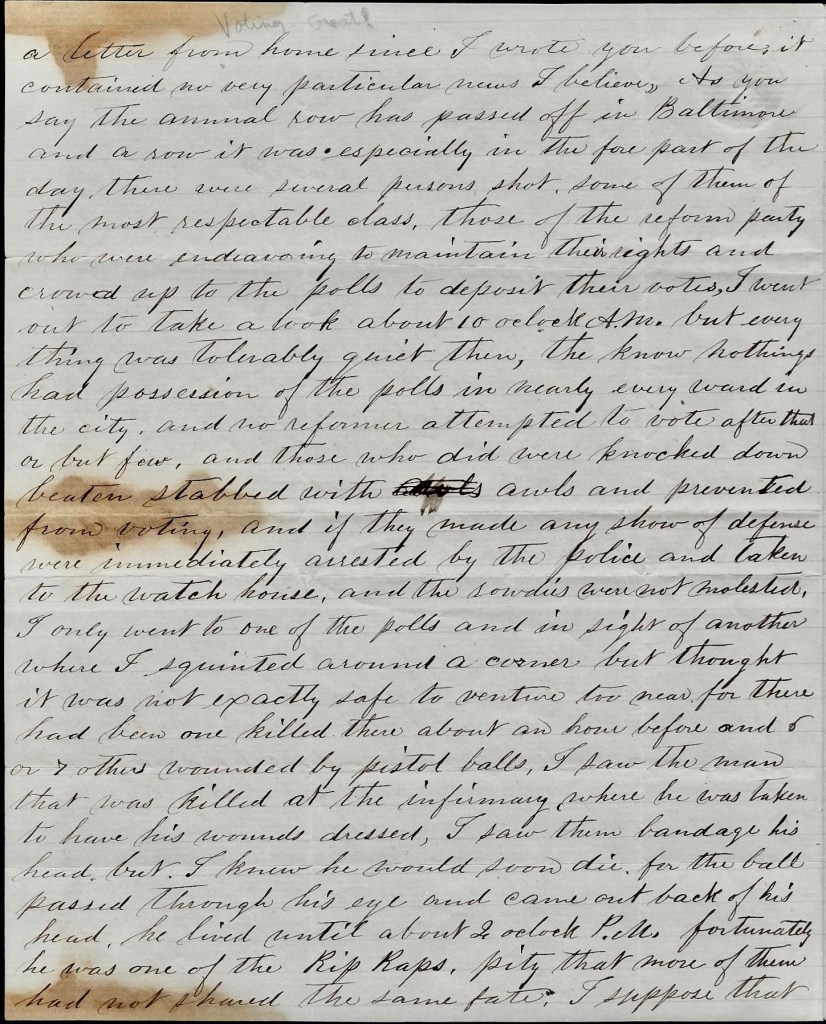 Voting
a letter from home since I wrote you before, it
contained no very particular news I believe, As you
say the annual row has passed off in Baltimore
and a row it was especially in the fore part of the
day, there were several persons shot, some of them of
the most respectable class, those of the reform party
who were endeavoring to maintain their rights and
crowd up to the polls to deposit their votes, I went
out to take a look about 10 oclock A.M. but every
thing was tolerably quiet then, the know nothings
had possession of the polls in nearly every ward in
the city, and no reformer attempted to vote after that
or but few, and those who did were knocked down
beaten stabbed with awls and prevented
from voting, and if they made any show of defense
were immediately arrested by the police and taken
to the watch house, and the rowdies were not molested,
I only went to one of the polls and in sight of another
where I squinted around a corner but thought
it was not exactly safe to venture too near for there
had been one killed there about an hour before and 6
or 7 others wounded by pistol balls, I saw the man
that was killed at the infirmary where he was taken
to have his wounds dressed, I saw them bandage his
head, but I knew he would soon die, for the ball
passed through his eye and came out back of his
head, he lived until about 2 oclock P.M. fortunately
he was one of the Rip Raps, pity that more of them
had not shared the same fate, I suppose that